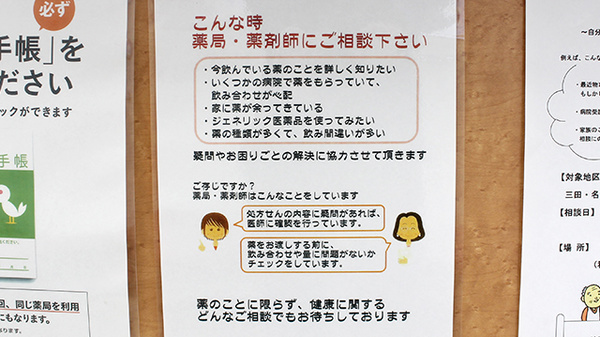 必ず
手帳」を
ださい
ックができます
手帳
回、同じ薬局を利用
にもなります。
こんな時
薬局・薬剤師にご相談下さい
・今飲んでいる薬のことを詳しく知りたい
・いくつかの病院で薬をもらっていて、
飲み合わせが心配
・家に薬が余ってきている
・ジェネリック医薬品を使ってみたい
・薬の種類が多くて、飲み間違いが多い
疑問やお困りごとの解決に協力させて頂きます
ご存じですか？
薬局・薬剤師はこんなことをしています
処方せんの内容に疑問があれば、
医師に確認を行っています。
薬をお渡しする前に、
飲み合わせや量に問題がないか
チェックをしています。
薬のことに限らず、健康に関する
どんなご相談でもお待ちしております
～自分
例えば、こんな
・最近物忘
もしか
・病院受診
・家族のこ
相談にの
【対象地区
三田・名
【相談日】
【場 所】